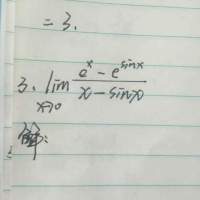 = 3.
3. lim x→0 (e^x - e^sinx)/(x - sinx)
解: